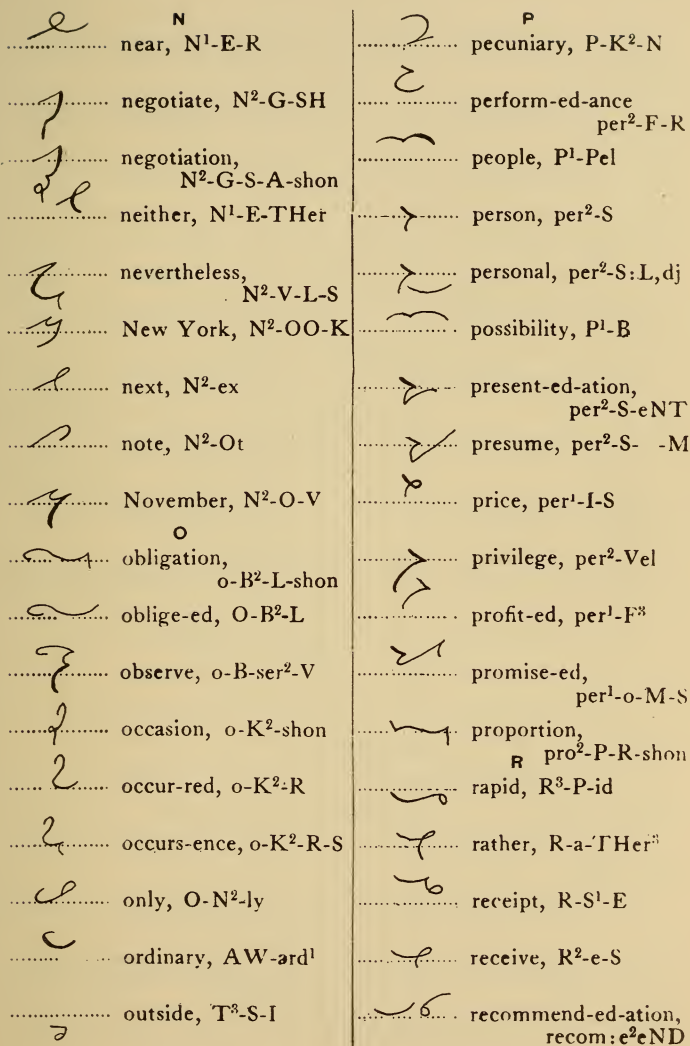 N
near, N¹-E-R
negotiate, N²-G-SH
negotiation,
N²-G-S-A-shon
neither, N¹-E-THer
nevertheless,
N²-V-L-S
New York, N²-OO-K
next, N²-ex
note, N²-Ot
November, N²-O-V
O
obligation,
o-B²-L-shon
oblige-ed, O-B²-L
observe, o-B-ser²-V
occasion, o-K²-shon
occur-red, o-K²-R
occurs-ence, o-K²-R-S
only, O-N²-ly
ordinary, AW-ard¹
outside, T³-S-I
P
pecuniary, P-K²-N
perform-ed-ance
per²-F-R
people, P¹-Pel
person, per²-S
personal, per²-S:L,dj
possibility, P¹-B
present-ed-ation,
per²-S-eNT
presume, per²-S- -M
price, per¹-I-S
privilege, per²-Vel
profit-ed, per¹-F³
promise-ed,
per¹-o-M-S
proportion,
pro²-P-R-shon
R
rapid, R³-P-id
rather, R-a-THer³
receipt, R-S¹-E
receive, R²-e-S
recommend-ed-ation,
recom:e²eND